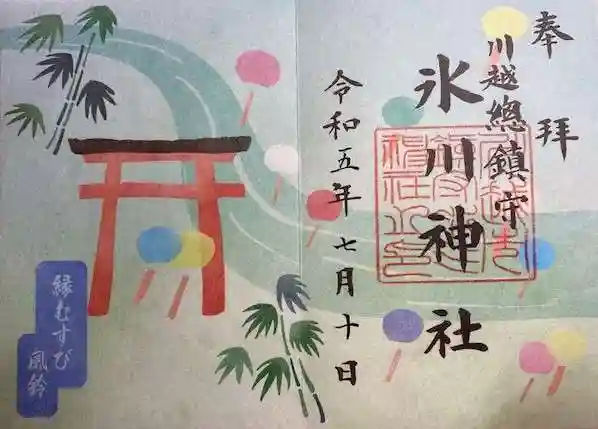 奉拝
川越總鎮守
氷川神社
令和五年七月十日
縁むすび
風鈴